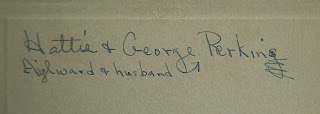 Hattie & George Perkins
Aylward & husband